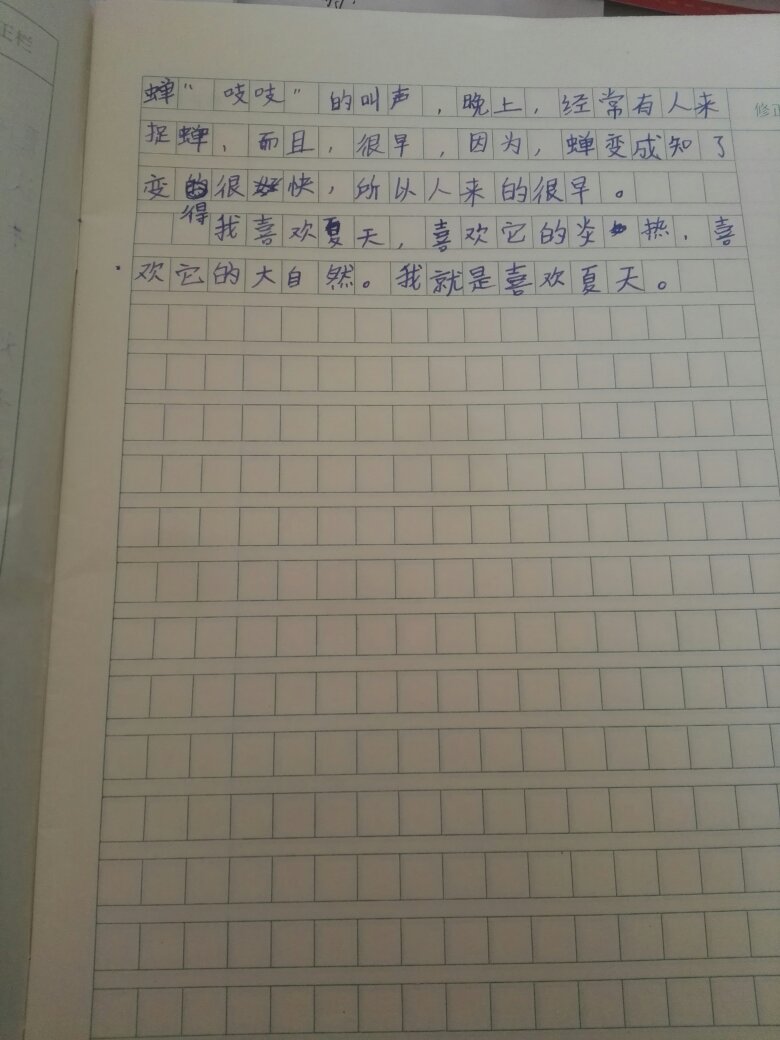 正栏
修正
蝉“吱吱”的叫声,晚上,经常有人来
捉蝉,而且,很早,因为,蝉变成知了
变得很快,所以人来的很早。
我喜欢夏天,喜欢它的炎热,喜
欢它的大自然。我就是喜欢夏天。